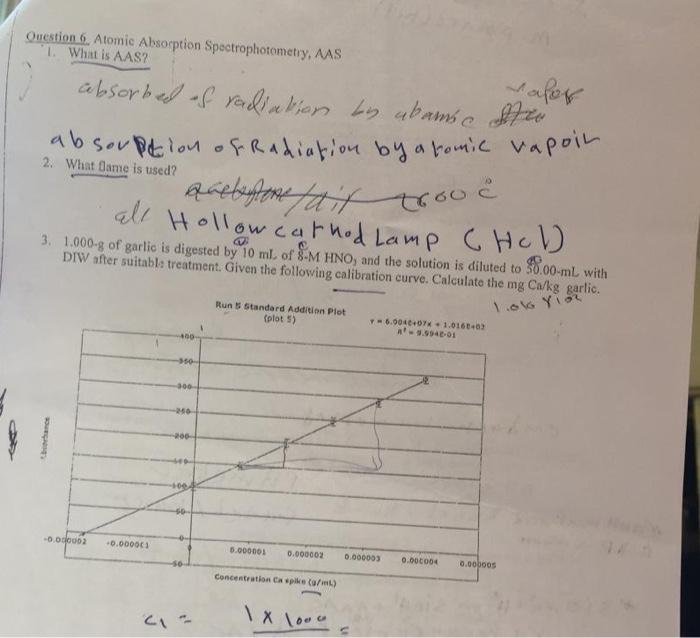 Question 6 Atomic Absorption Spectrophotometry, AAS
1. What is AAS?
absorbed of radiation by vapor
absorption of Radiation by atomic vapoir
2. What flame is used?
Hollow cathod Lamp (Hcl)
3. 1.000-g of garlic is digested by 10 mL of 8-M HNO3 and the solution is diluted to 50.00-mL with
DIW after suitable treatment. Given the following calibration curve. Calculate the mg Ca/kg garlic.
Run 5 Standard Addition Plot
(plot 5)
400
350
300
250
200
100
50
0
-50
-0.000002
-0.000001
0.000001
0.000002
0.000003
0.000004
0.000005
Concentration Ca spike (g/mL)
C1 = 1 x 1000 =